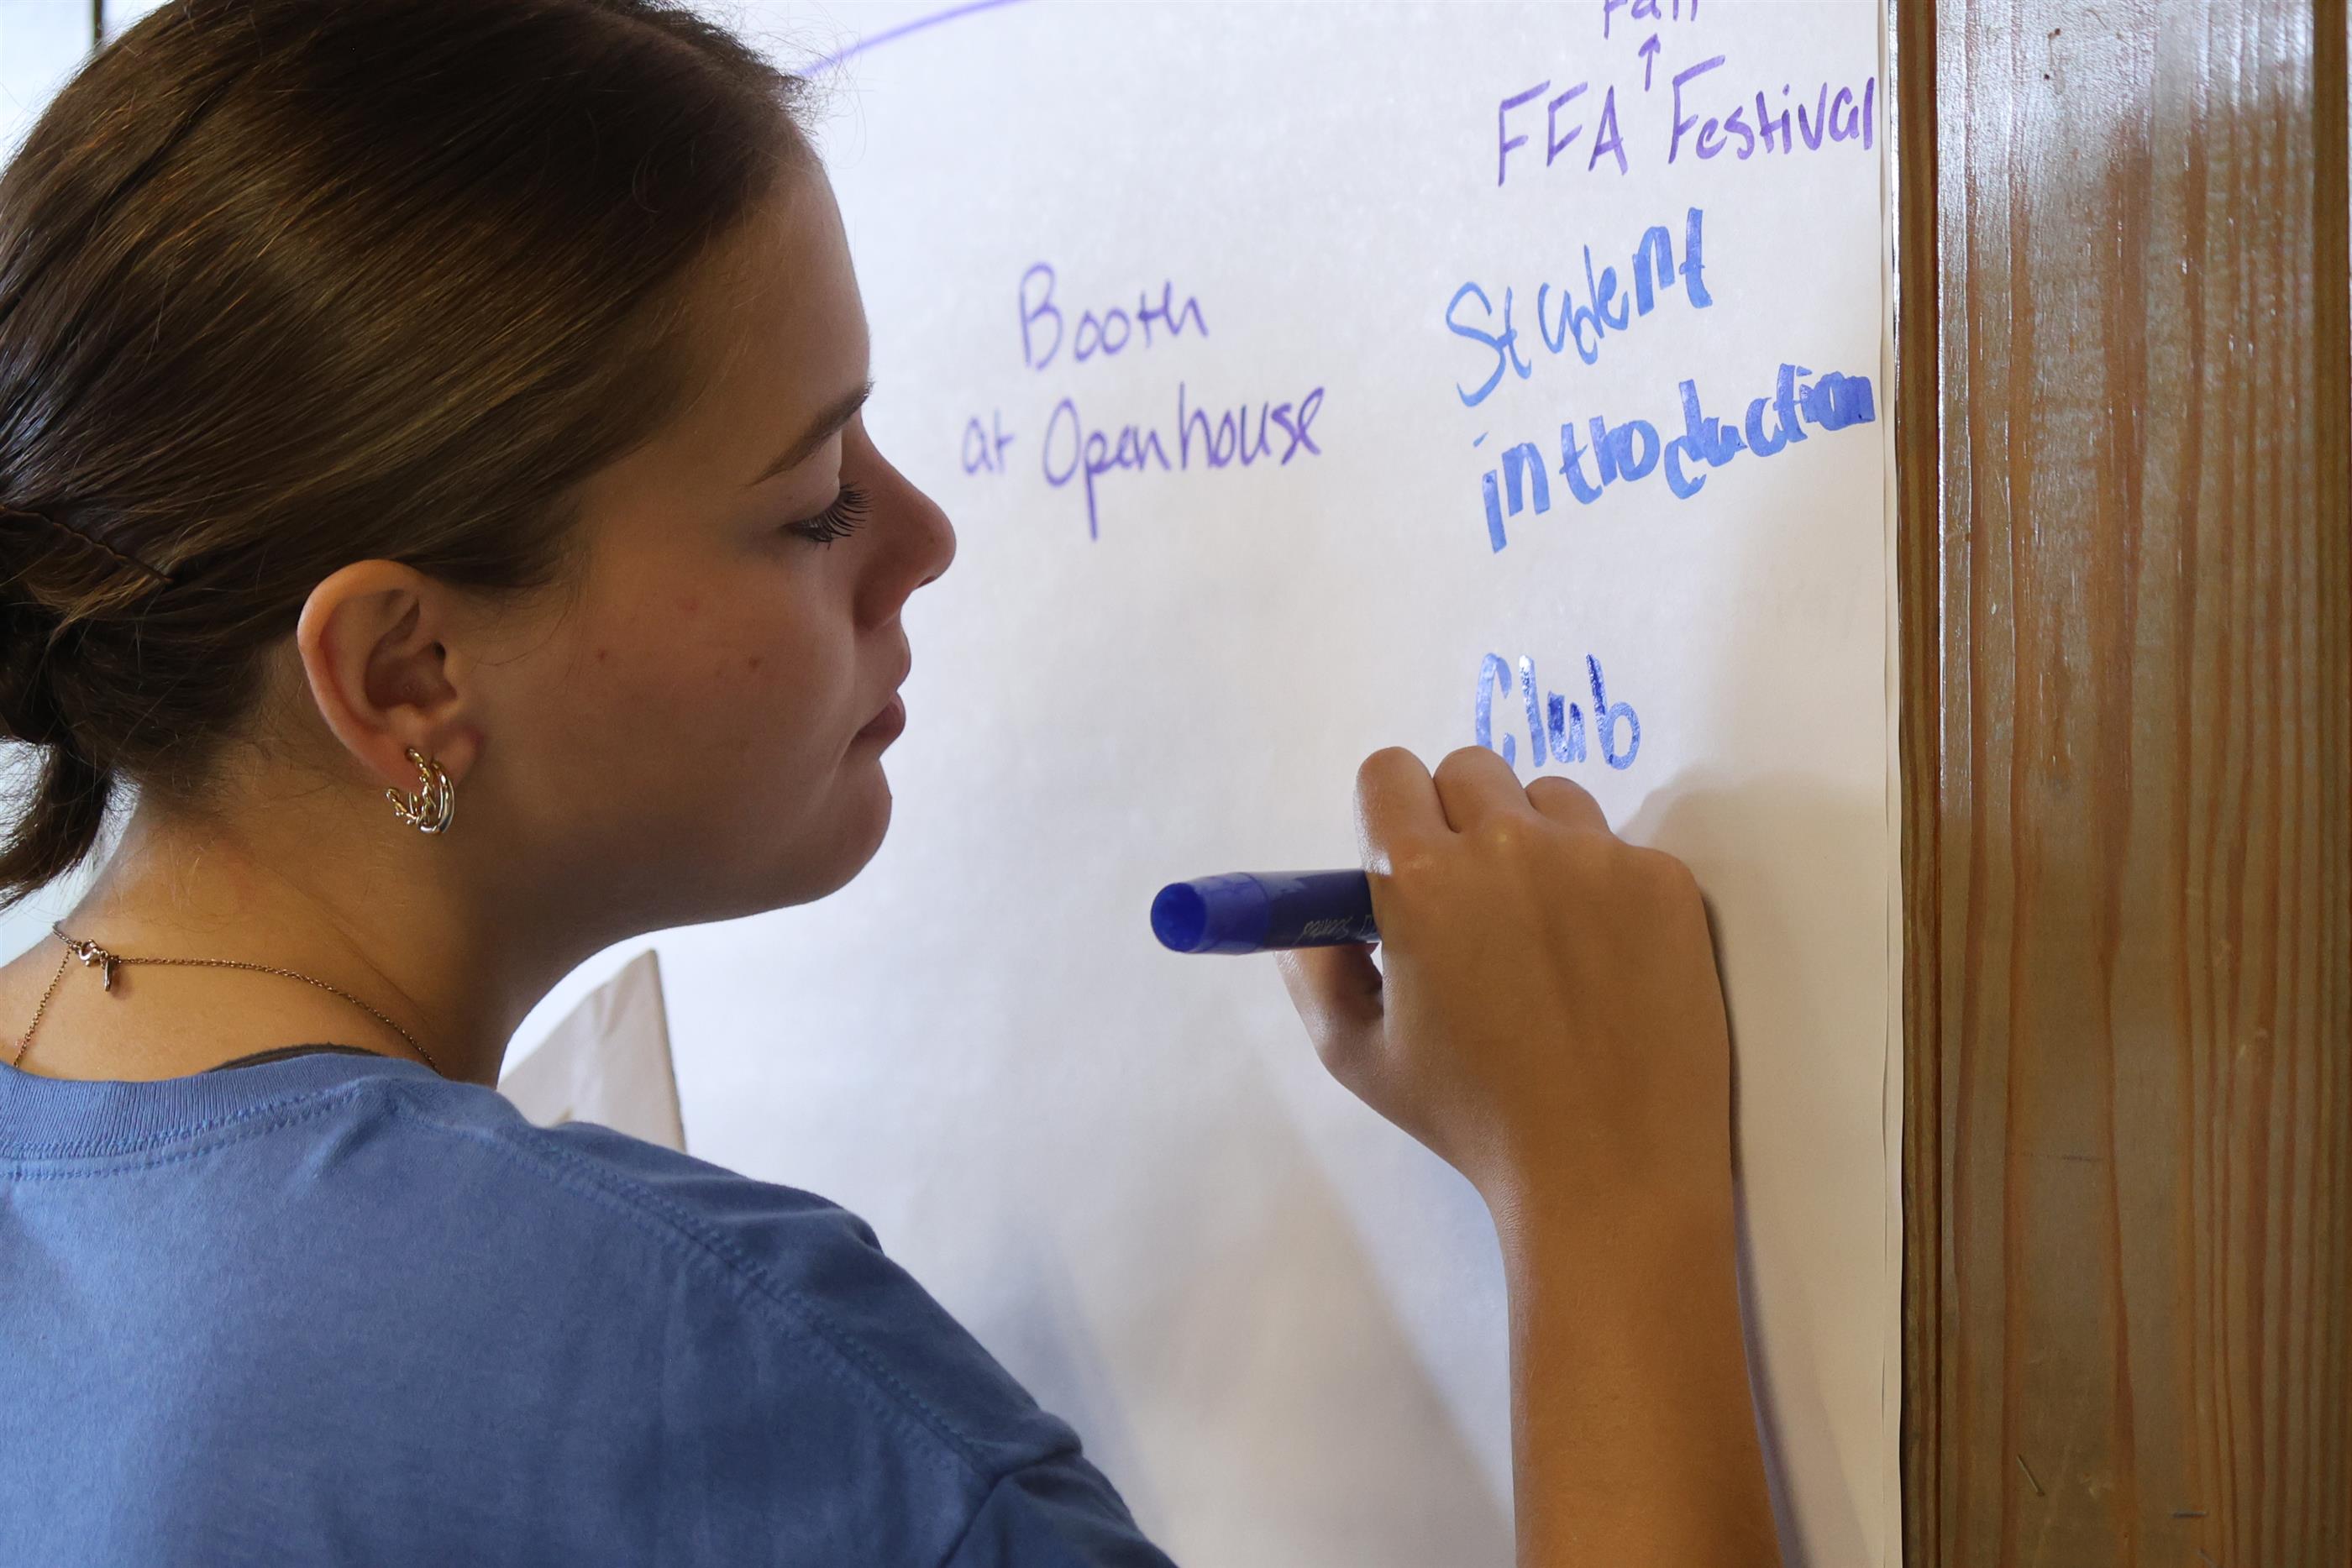 Fall
↑
FFA Festival
Booth
at Openhouse
Student
introduction
Club